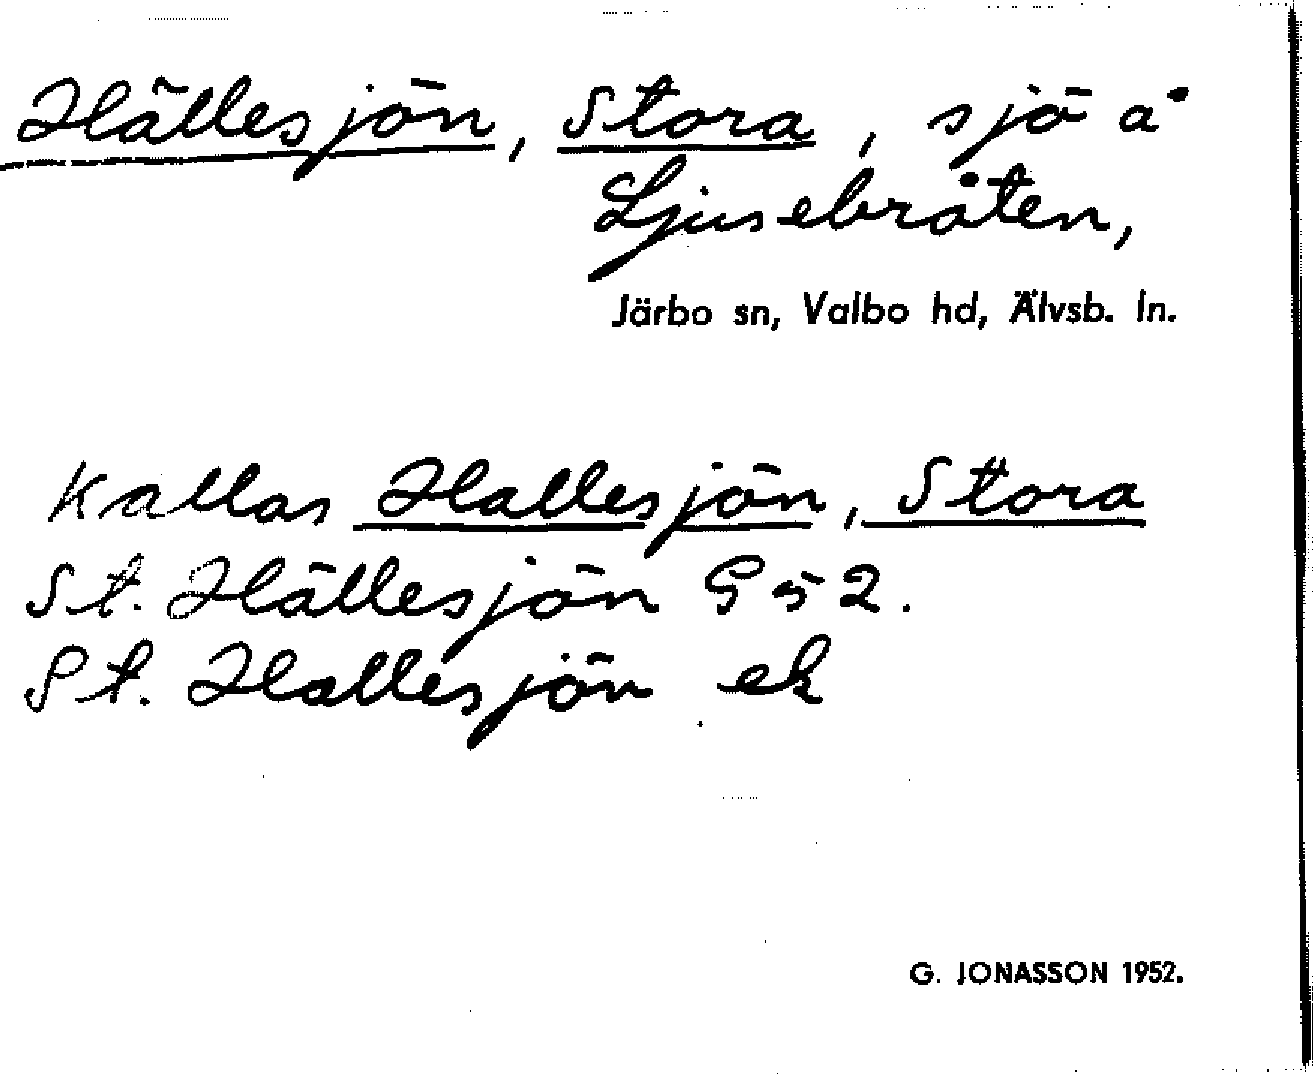 Hällesjön, Stora, sjö å
Ljusebråten,
Järbo sn, Valbo hd, Älvsb. ln.
Kallas Hallesjön, Stora
St. Hällesjön G 52.
St. Hallesjön ek
G. JONASSON 1952.